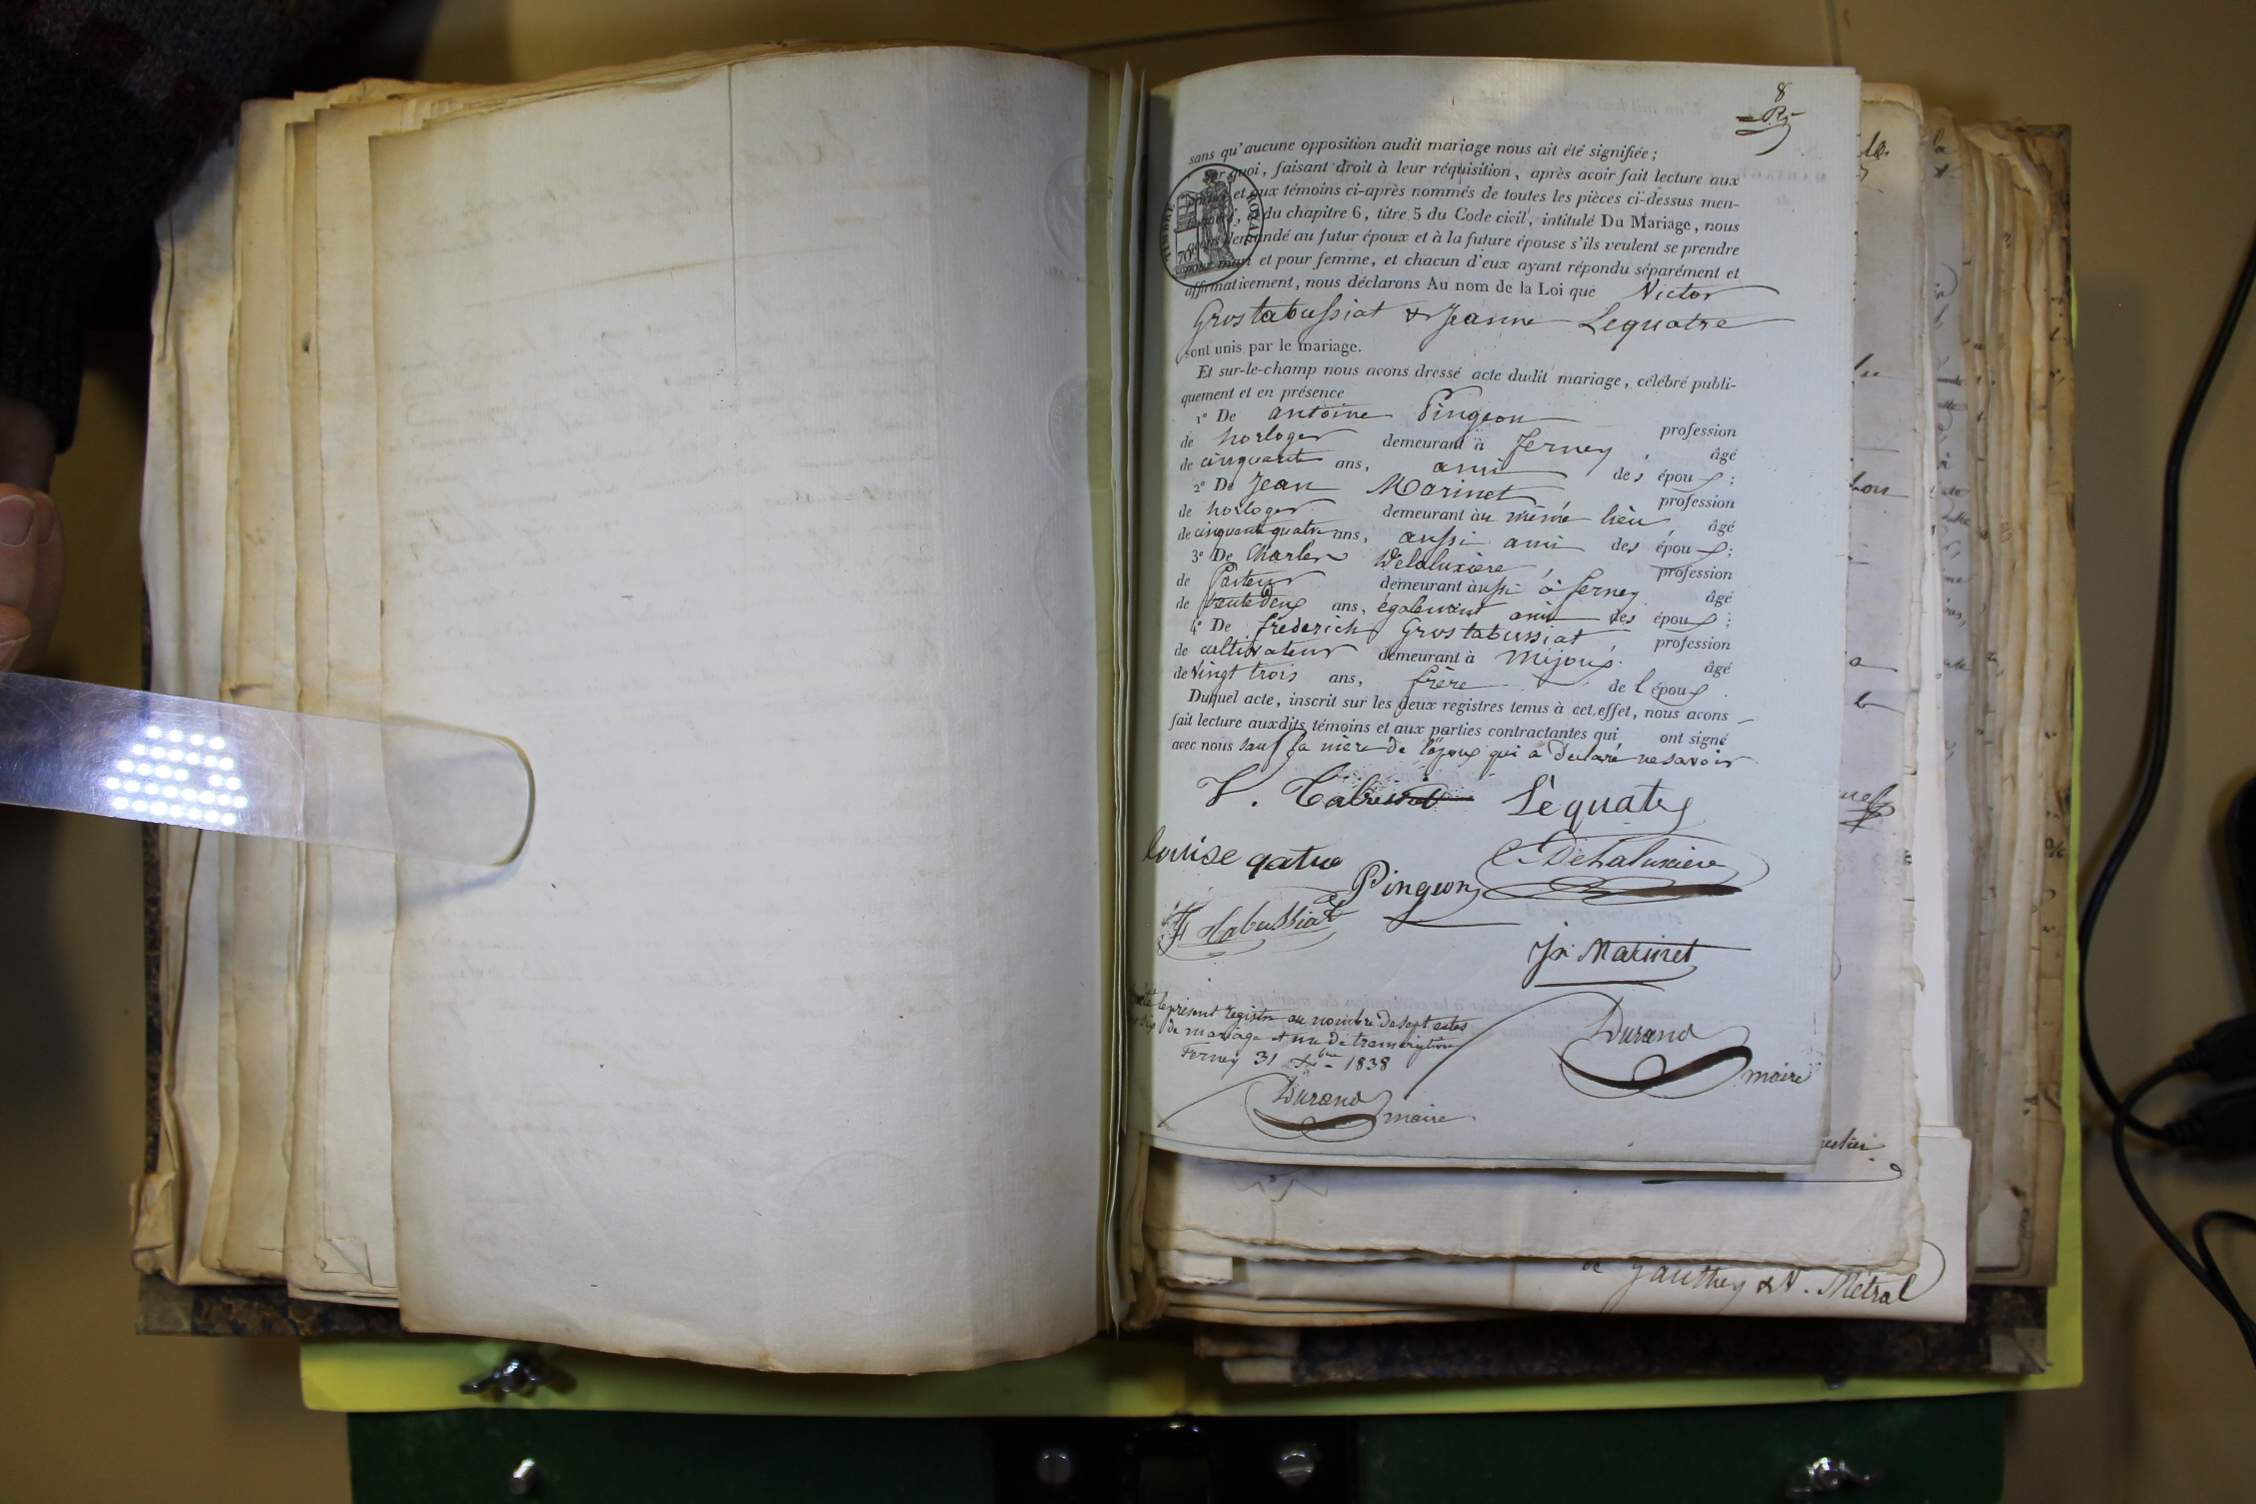 8
sans qu'aucune opposition audit mariage nous ait été signifiée;
Sur quoi, faisant droit à leur réquisition, après avoir fait lecture aux
parties et aux témoins ci-après nommés de toutes les pièces ci-dessus men-
tionnées, et du chapitre 6, titre 5 du Code civil, intitulé Du Mariage, nous
avons demandé au futur époux et à la future épouse s'ils veulent se prendre
pour mari et pour femme, et chacun d'eux ayant répondu séparément et
affirmativement, nous déclarons Au nom de la Loi que Victor
Grostabussiat & Jeanne Lequatre
sont unis par le mariage.
Et sur-le-champ nous avons dressé acte dudit mariage, célébré publi-
quement et en présence
1° De antoine Pingeon profession
de horloger demeurant à ferney, âgé
de cinquante ans, ami des époux;
2° De Jean Marinet profession
de horloger demeurant au même lieu, âgé
de cinquant quatre ans, aussi ami des époux;
3° De Charles Delaluxière, profession
de demeurant aussi à ferney âgé
de trente deux ans, également ami des époux;
4° De frederich Grostabussiat profession
de cultivateur demeurant à mijoux. âgé
de Vingt trois ans, frère de l époux.
Duquel acte, inscrit sur les deux registres tenus à cet effet, nous avons
fait lecture auxdits témoins et aux parties contractantes qui ont signé
avec nous sauf la mère de l'époux qui a declaré ne savoir
TIMBRE ROYAL
70c
V. Tabussiat Lèquatre
louise qatre C Delaluxiere
Pingeon
F Tabussiat
Jn Marinet
le présent registre au nombre de sept actes
six de mariage et un de transcription
Ferney 31 Xbre 1838
Durand
maire
Durand maire
& Gauthey & V. Métral